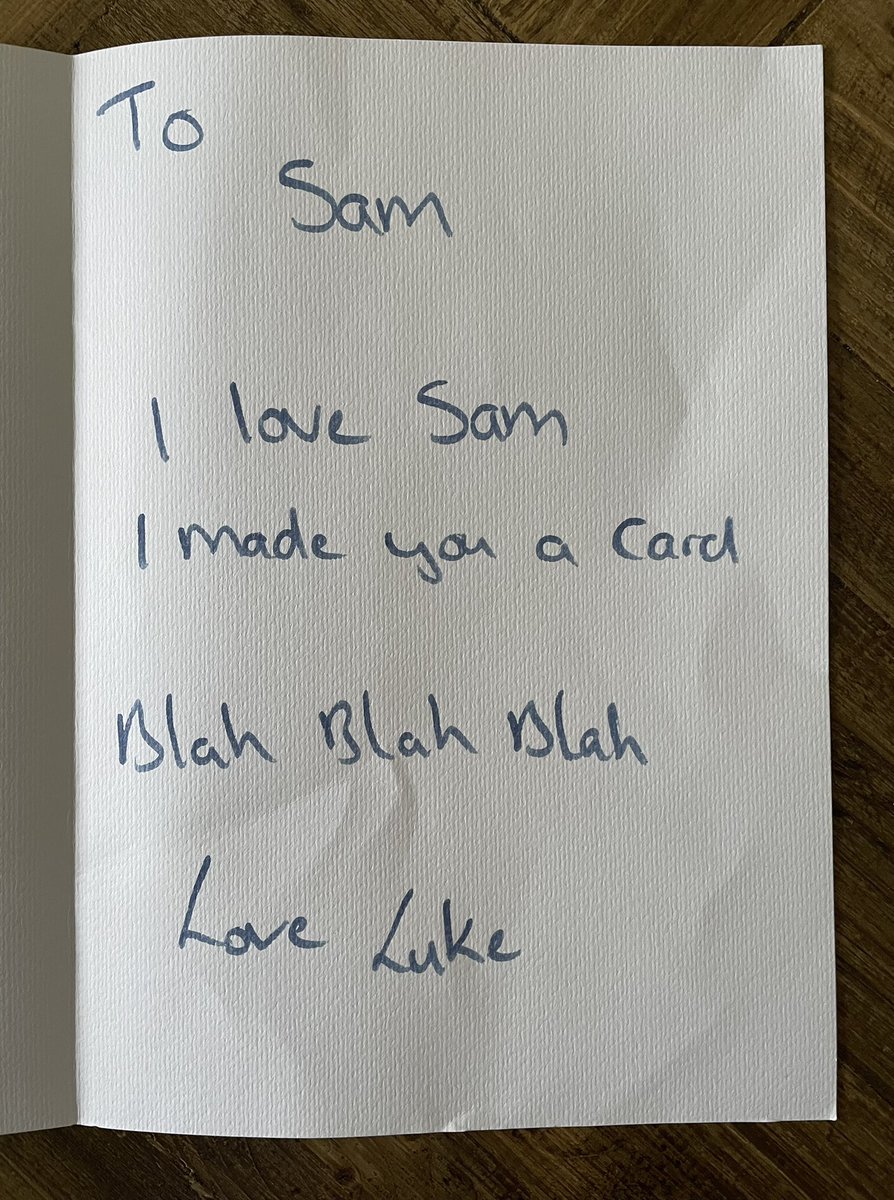 To
Sam
I love Sam
I made you a Card
Blah Blah Blah
Love Luke